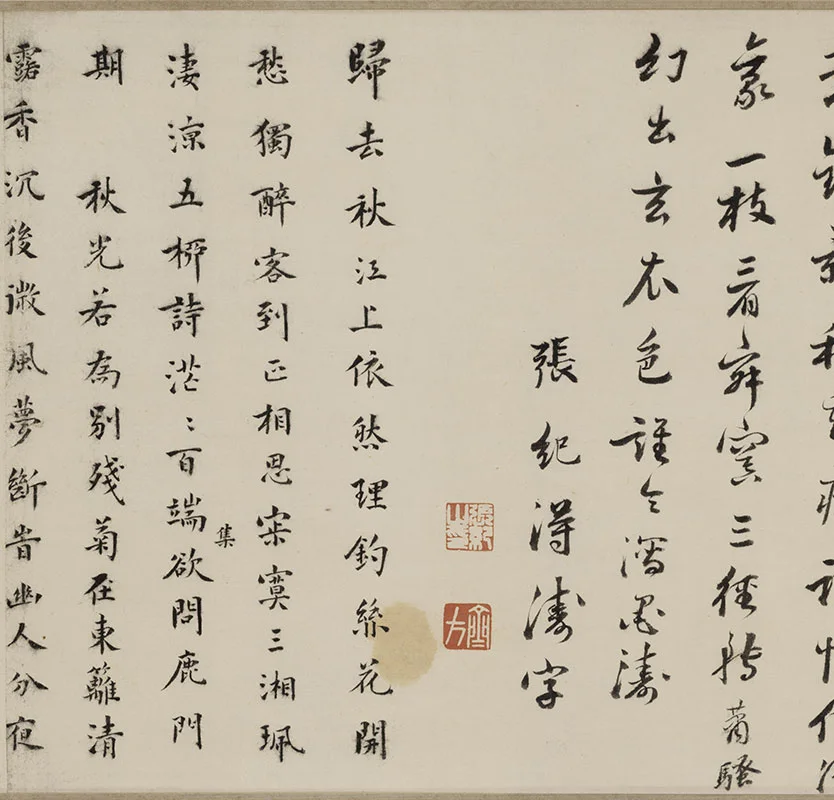 豪一枝看寂寞三徑轉蕭騷
幻出玄衣色誰令瀉墨濤
張紀得濤字
歸去秋江上依然理釣絲花開
愁獨醉客到正相思寂寞三湘珮
淒涼五柳詩茫〻百端集欲問鹿門
期　秋光若為別殘菊在東籬清
露香沉後微風夢斷旹幽人分夜